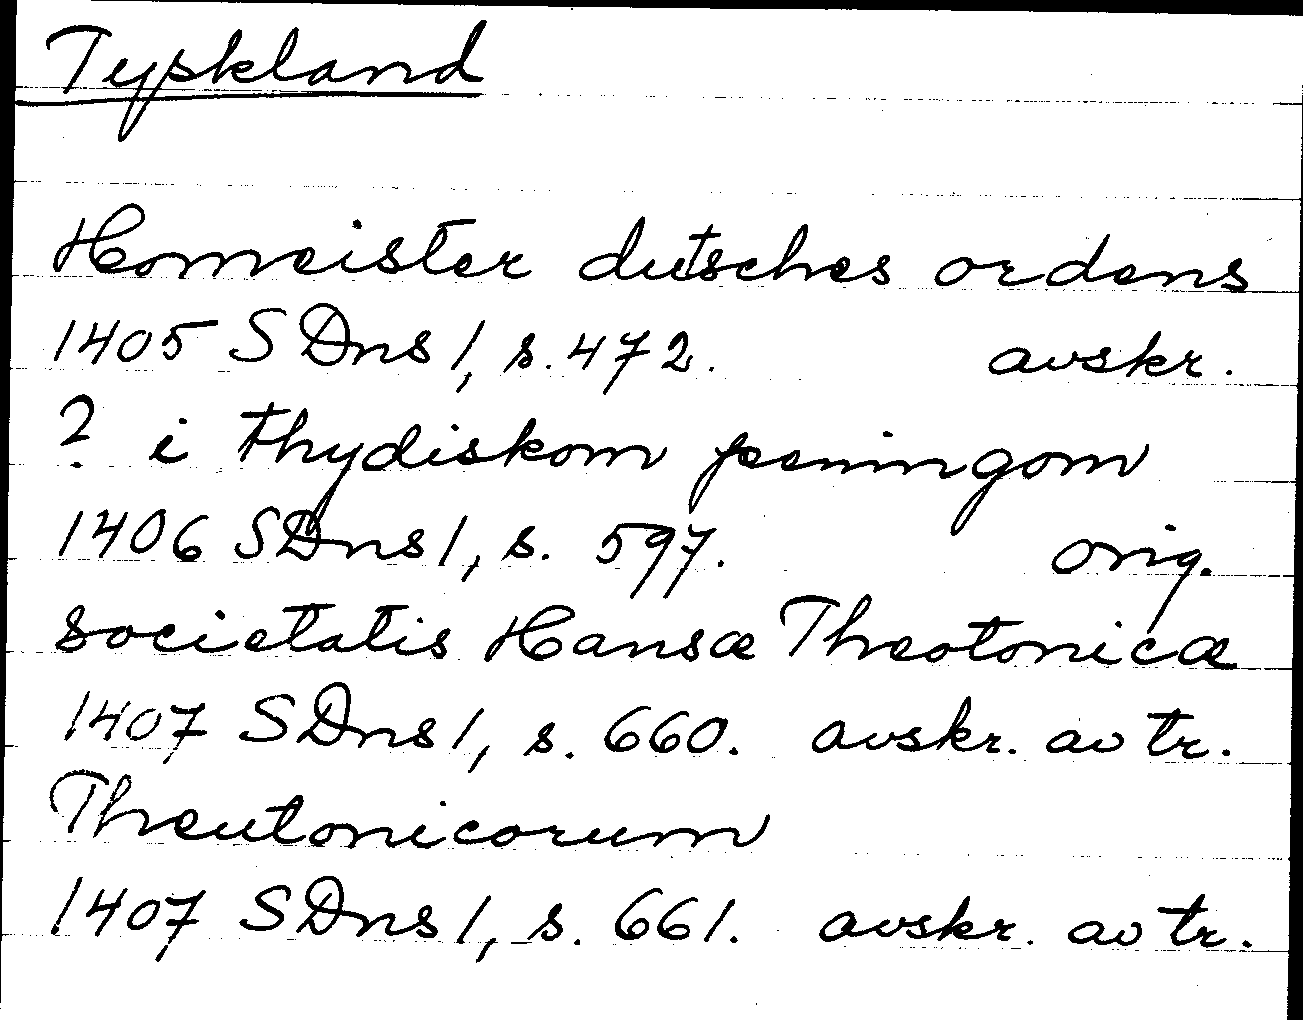 Tyskland
Homeister dutsches ordens
1405 SDns 1, s. 472. avskr.
? i thydiskom peningom
1406 SDns 1, s. 597. orig.
societatis Hansæ Theotonicæ
1407 SDns 1, s. 660. avskr. av tr.
Theutonicorum
1407 SDns 1, s. 661. avskr. av tr.